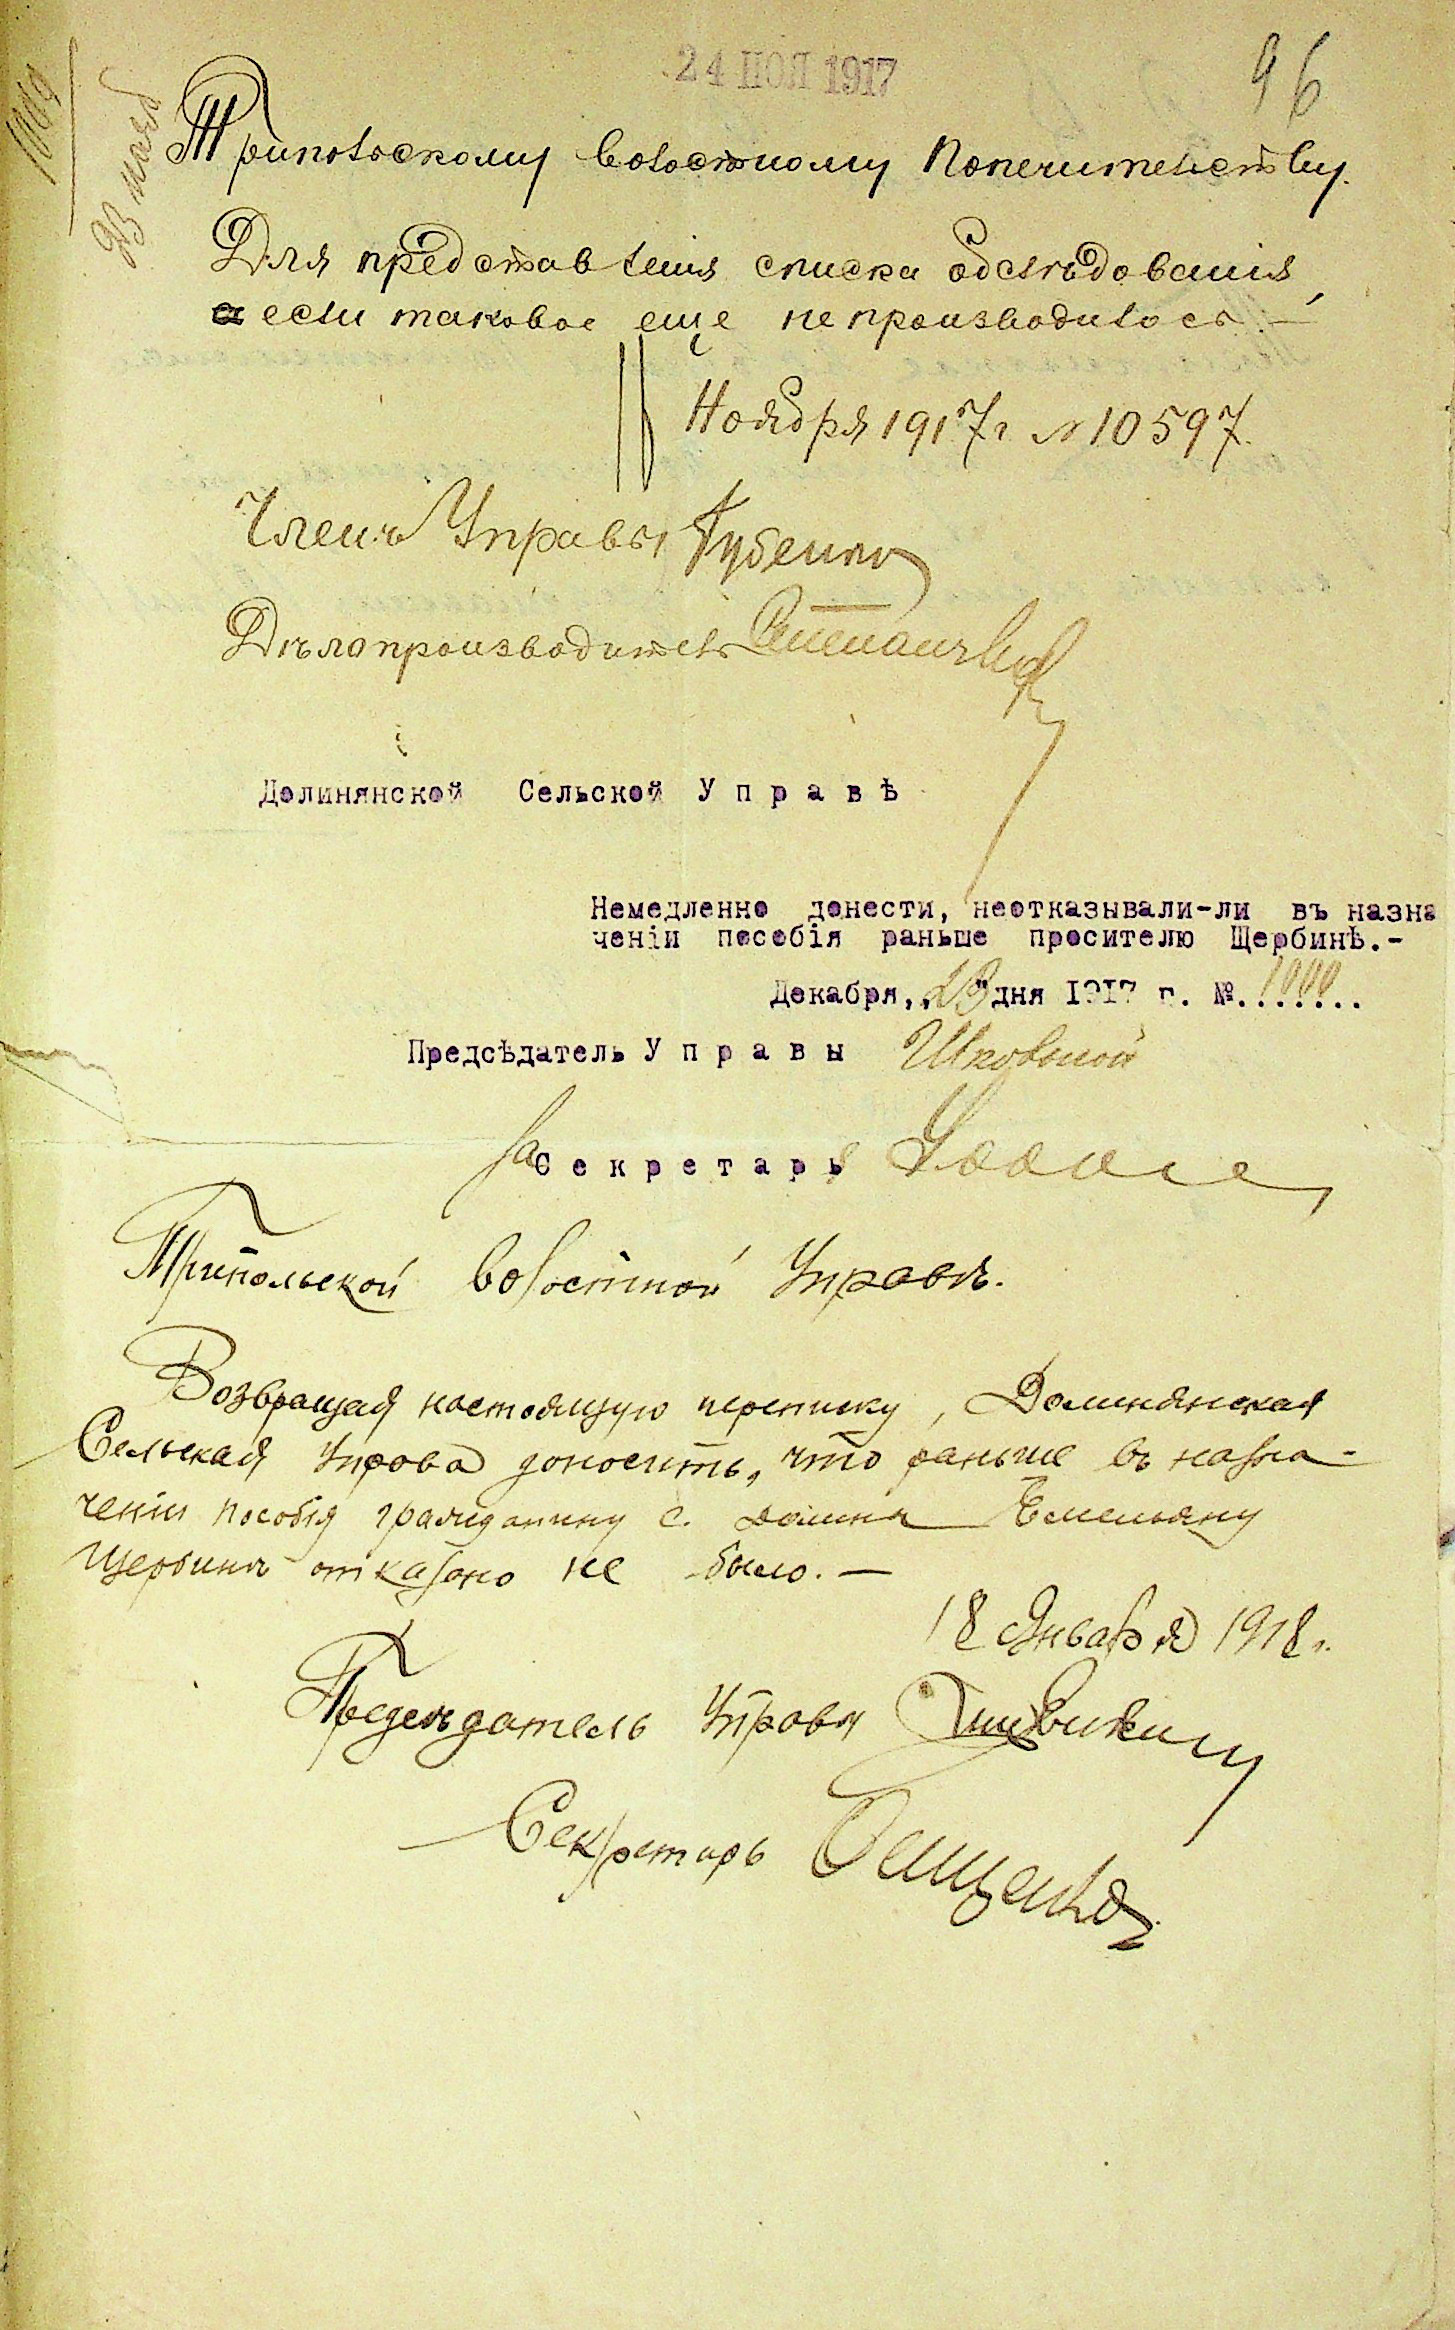 24 НОЯ 1917
96
Трипольскому волостному Попечительству.
Для представленія списка обслѣдованія,
если таковое еще не производилось. —
16 Ноября 1917 г № 10597.
Членъ Управы Губенко
Дѣлопроизводитель
Долинянской Сельской Управѣ
Немедленно донести, неотказывали-ли въ назна
ченіи пособія раньше просителю Щербинѣ.-
Декабря,,23"дня 1917 г. №.1000
Предсѣдатель Управы
За Секретаря
Трипольской волостной Управѣ.
Возвращая настоящую переписку, Долинянская
Сельская Управа доноситъ, что раньше въ назна-
ченіи пособія гражданину с. Долины Емельяну
Щербинѣ отказано не было. —
18 Января 1918 г.
Предсѣдатель Управы
Секретарь